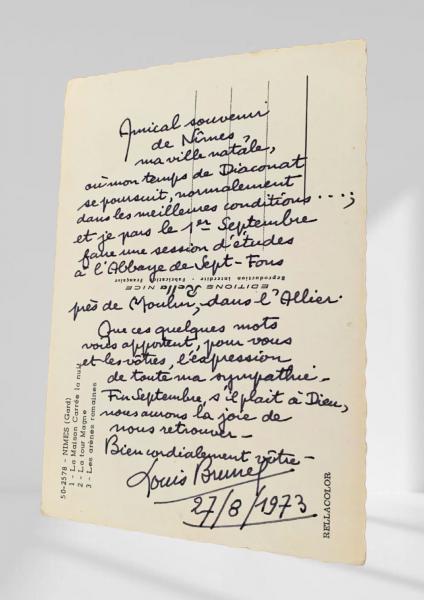 Amical souvenir
de Nîmes,
ma ville natale,
où mon temps de Diaconat
se poursuit, normalement
dans les meilleures conditions ....;
et je pars le 1er Septembre
faire une session d'études
à l'Abbaye de Sept-Fons
près de Moulin, dans l'Allier.
Que ces quelques mots
vous apportent, pour vous
et les vôtres, l'expression
de toute ma sympathie -
Fin Septembre, s'il plaît à Dieu,
nous aurons la joie de
nous retrouver -
Bien cordialement vôtre -
Louis Brunel
27/8/1973
EDITIONS Rella NICE
Reproduction interdite - Fabrication Française
50-2578 - NIMES (Gard)
1 - La Maison Carrée la nuit
2 - La tour Magne
3 - Les arènes romaines
RELLACOLOR